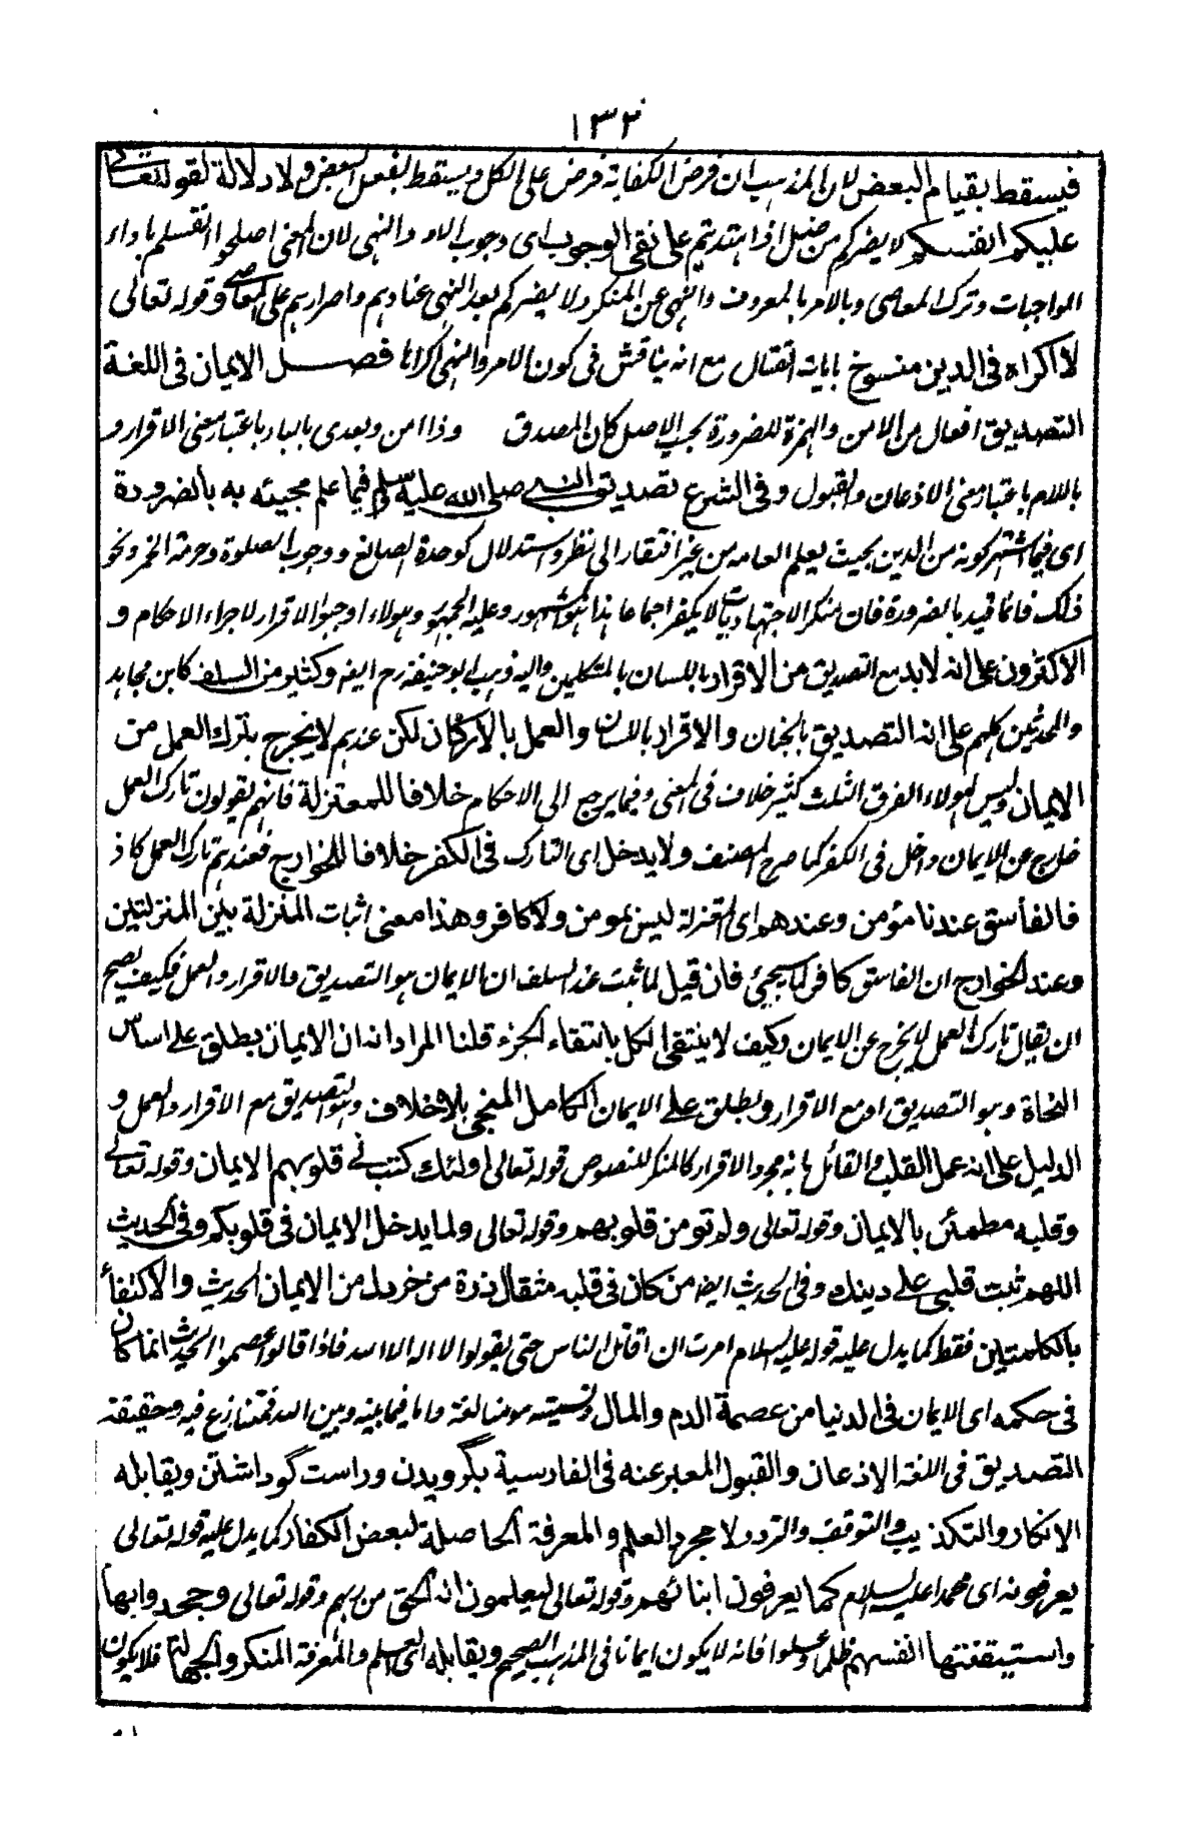 ١٣٢
فيسقط بقيام البعض لان المذهب ان فرض الكفاية فرض على الكل ويسقط بفعل البعض ولا دلالة لقوله تعالى
عليكم انفسكم لا يضركم من ضل اذا اهتديتم على نفى الوجوب اى وجوب الامر والنهى لان المعنى اصلحوا انفسكم باداء
الواجبات وترك المعاصى وبالامر بالمعروف والنهى عن المنكر ولا يضركم بعد النهى عنادهم واصرارهم على المعاصى وقوله تعالى
لا اكراه فى الدين منسوخ باية القتال مع انه يناقش فى كون الامر والنهى اكراها فصل الايمان فى اللغة
التصديق افعال من الامن والهمزة للضرورة بحسب الاصل كان المصدق وذا امن ويعدى بالباء باعتبار معنى الاقرار و
باللام باعتبار معنى الاذعان والقبول وفى الشرع تصديق النبى صلى الله عليه وسلم فيما علم مجيئه به بالضرورة
اى فيما اشتهر كونه من الدين بحيث يعلم العامه من غير افتقار الى نظر واستدلال كوحدة الصانع ووجوب الصلوة وحرمة الخمر ونحو
ذلك فانما قيد بالضرورة فان منكر الاجتهاديات لا يكفر اجماعا هذا هو المشهور وعليه الجمهور وهولاء اوجبوا الاقرار لاجراء الاحكام و
الاكثرون على انه لابد مع التصديق من الاقرار باللسان بالمتكلمين واليه ذهب ابو حنيفة رح ايضا وكثير من السلف كابن مجاهد
والمحدثين كلهم على انه التصديق بالجنان والاقرار باللسان والعمل بالاركان لكن عندهم لا يخرج بترك العمل من
الايمان وليس لهولاء الفرق الثلث كثير خلاف فى المعنى وفيما يرجع الى الاحكام خلافا للمعتزلة فانهم يقولون تارك العمل
خارج عن الايمان داخل فى الكفر كما صرح المصنف ولا يدخل اى التارك فى الكفر خلافا للخوارج فعندهم تارك العمل كافر
فالفاسق عندنا مؤمن وعندهم اى المعتزلة ليس بمومن ولا كافر وهذا معنى اثبات المنزلة بين المنزلتين
وعند الخوارج ان الفاسق كافر كما سيجئ فان قيل لما ثبت عند السلف ان الايمان هو التصديق والاقرار والعمل فكيف يصح
ان يقال تارك العمل لا يخرج عن الايمان وكيف لا ينتفى الكل بانتفاء الجزء قلنا المراد انه ان الايمان يطلق على اساس
النجاة وهو التصديق او مع الاقرار ويطلق على الايمان الكامل المنجى بلا خلاف وهو التصديق مع الاقرار والعمل و
الدليل على انه عمل القلب والقائل بانه مجرد الاقرار كالمنكر للنصوص قوله تعالى اولئك كتب فى قلوبهم الايمان وقوله تعالى
وقلبه مطمئن بالايمان وقوله تعالى ولم تومن قلوبهم وقوله تعالى ولما يدخل الايمان فى قلوبكم وفى الحديث
اللهم ثبت قلبى على دينك وفى الحديث ايضا من كان فى قلبه مثقال ذرة من خردل من الايمان الحديث والاكتفاء
بالكلمتين فقط كما يدل عليه قوله عليه السلام امرت ان اقاتل الناس حتى يقولوا لا اله الا الله فاذا قالوا عصموا الحديث انما كان
فى حكمه اى الايمان فى الدنيا من عصمة الدم والمال وتسميته مومنا لغة واما فيما بينه وبين الله فمتنازع فيه وحقيقة
التصديق فى اللغة الاذعان والقبول المعبر عنه فى الفارسية بگرويدن وراست گو داشتن ويقابله
الانكار والتكذيب والتوقف والتردد لا مجرد العلم والمعرفة الحاصلة لبعض الكفار كما يدل عليه قوله تعالى
يعرفونه اى محمدا عليه السلام كما يعرفون ابنائهم وقوله تعالى ليعلمون انه الحق من ربهم وقوله تعالى وجحدوا بها
واستيقنتها انفسهم ظلما وعلوا فانه لا يكون ايمانا فى المذهب الصحيح ويقابله اى العلم والمعرفة المنكر والجهالة فلا يكون